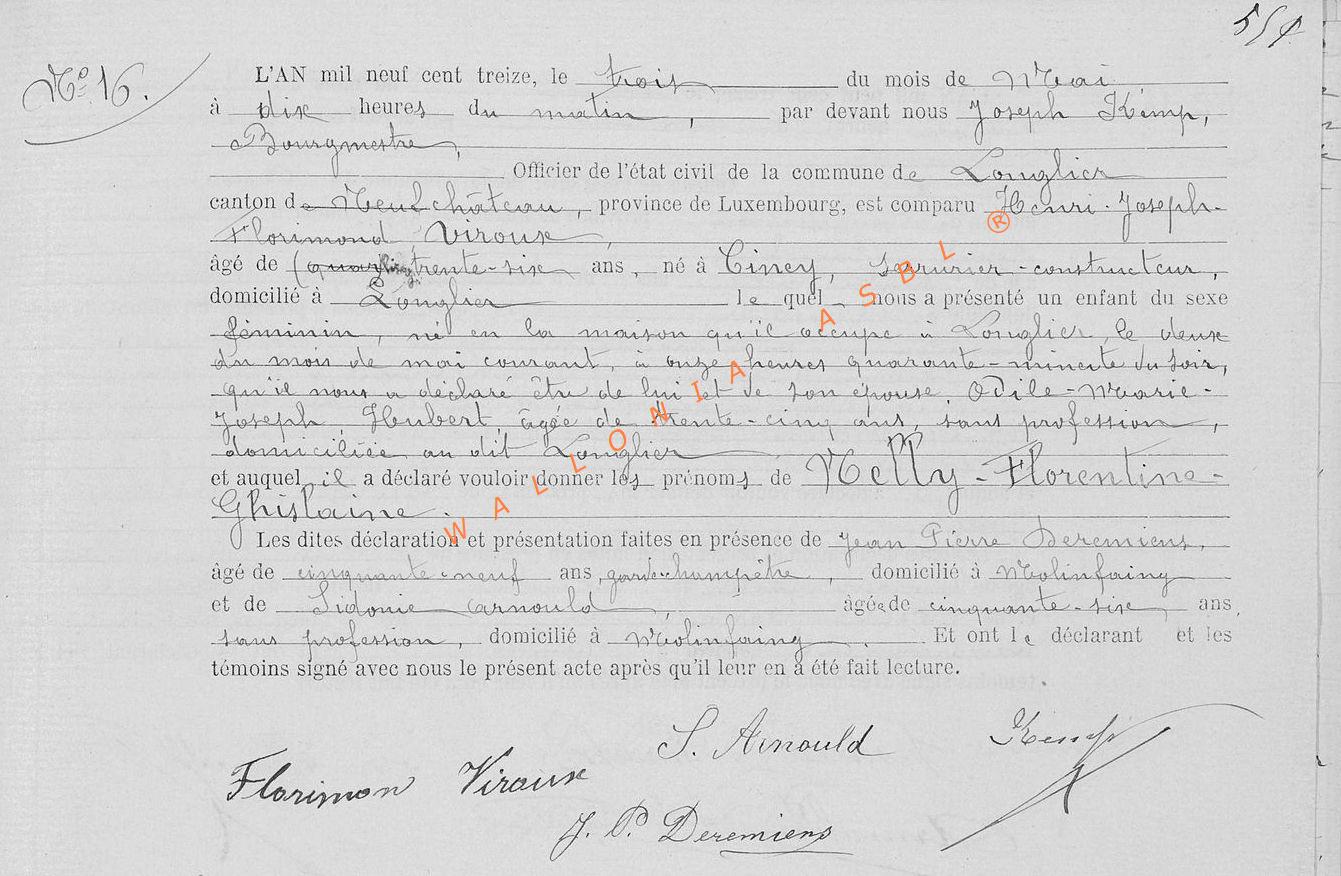 554
N° 16.
L'AN mil neuf cent treize, le trois du mois de Mai
à dix heures du matin, par devant nous Joseph Kemp,
Bourgmestre,
Officier de l'état civil de la commune de Longlier
canton de Neufchâteau, province de Luxembourg, est comparu Henri-Joseph-
Florimond Viroux,
âgé de trente-six ans, né à Ciney, serrurier-constructeur,
domicilié à Longlier lequel nous a présenté un enfant du sexe
féminin, né en la maison qu'il occupe à Longlier, le deux
du mois de mai courant, à onze heures quarante-minute du soir,
qu'il nous a déclaré être de lui et de son épouse, Odile-Marie-
Joseph Houbert, âgée de trente-cinq ans, sans profession,
domiciliée au dit Longlier
et auquel il a déclaré vouloir donner les prénoms de Nelly-Florentine-
Ghislaine.
Les dites déclaration et présentation faites en présence de Jean Pierre Deremiens,
âgé de cinquante-neuf ans, garde-champêtre, domicilié à Molinfaing
et de Sidonie Arnould, âgée de cinquante-six, ans,
sans profession, domicilié à Molinfaing. Et ont le déclarant et les
témoins signé avec nous le présent acte après qu'il leur en a été fait lecture.
S. Arnould Kemp
Florimon Viroux
J. P. Deremiens
WALLONIA ASBL ®